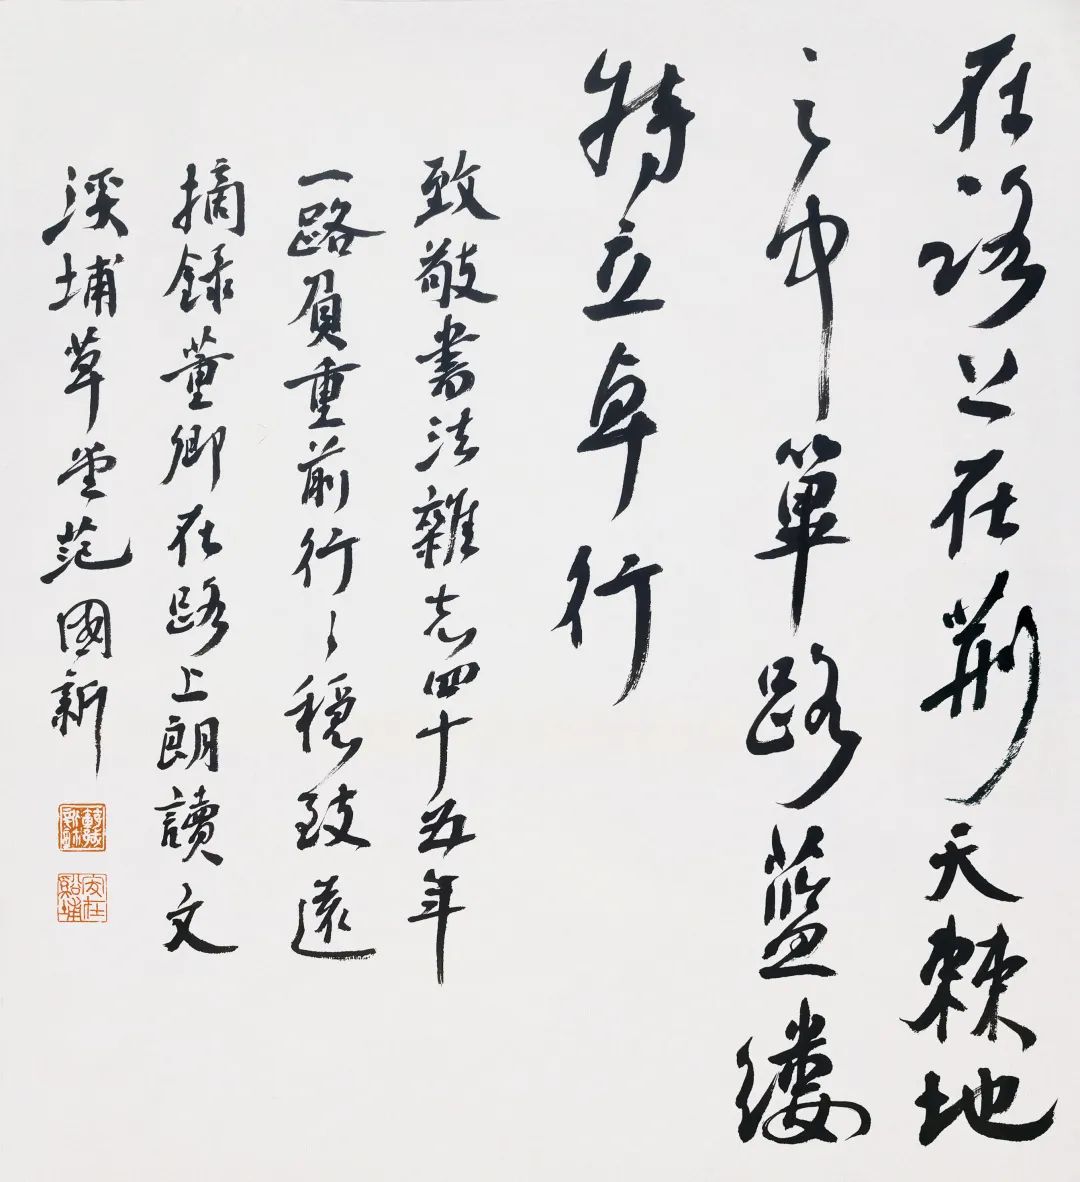 在路上在荆天棘地
之中篳路蓝缕
特立卓行
致敬書法雜志四十五年
一路負重前行々穩致遠
摘録董卿在路上朗讀文
溪埔草堂范國新
安在谿埔